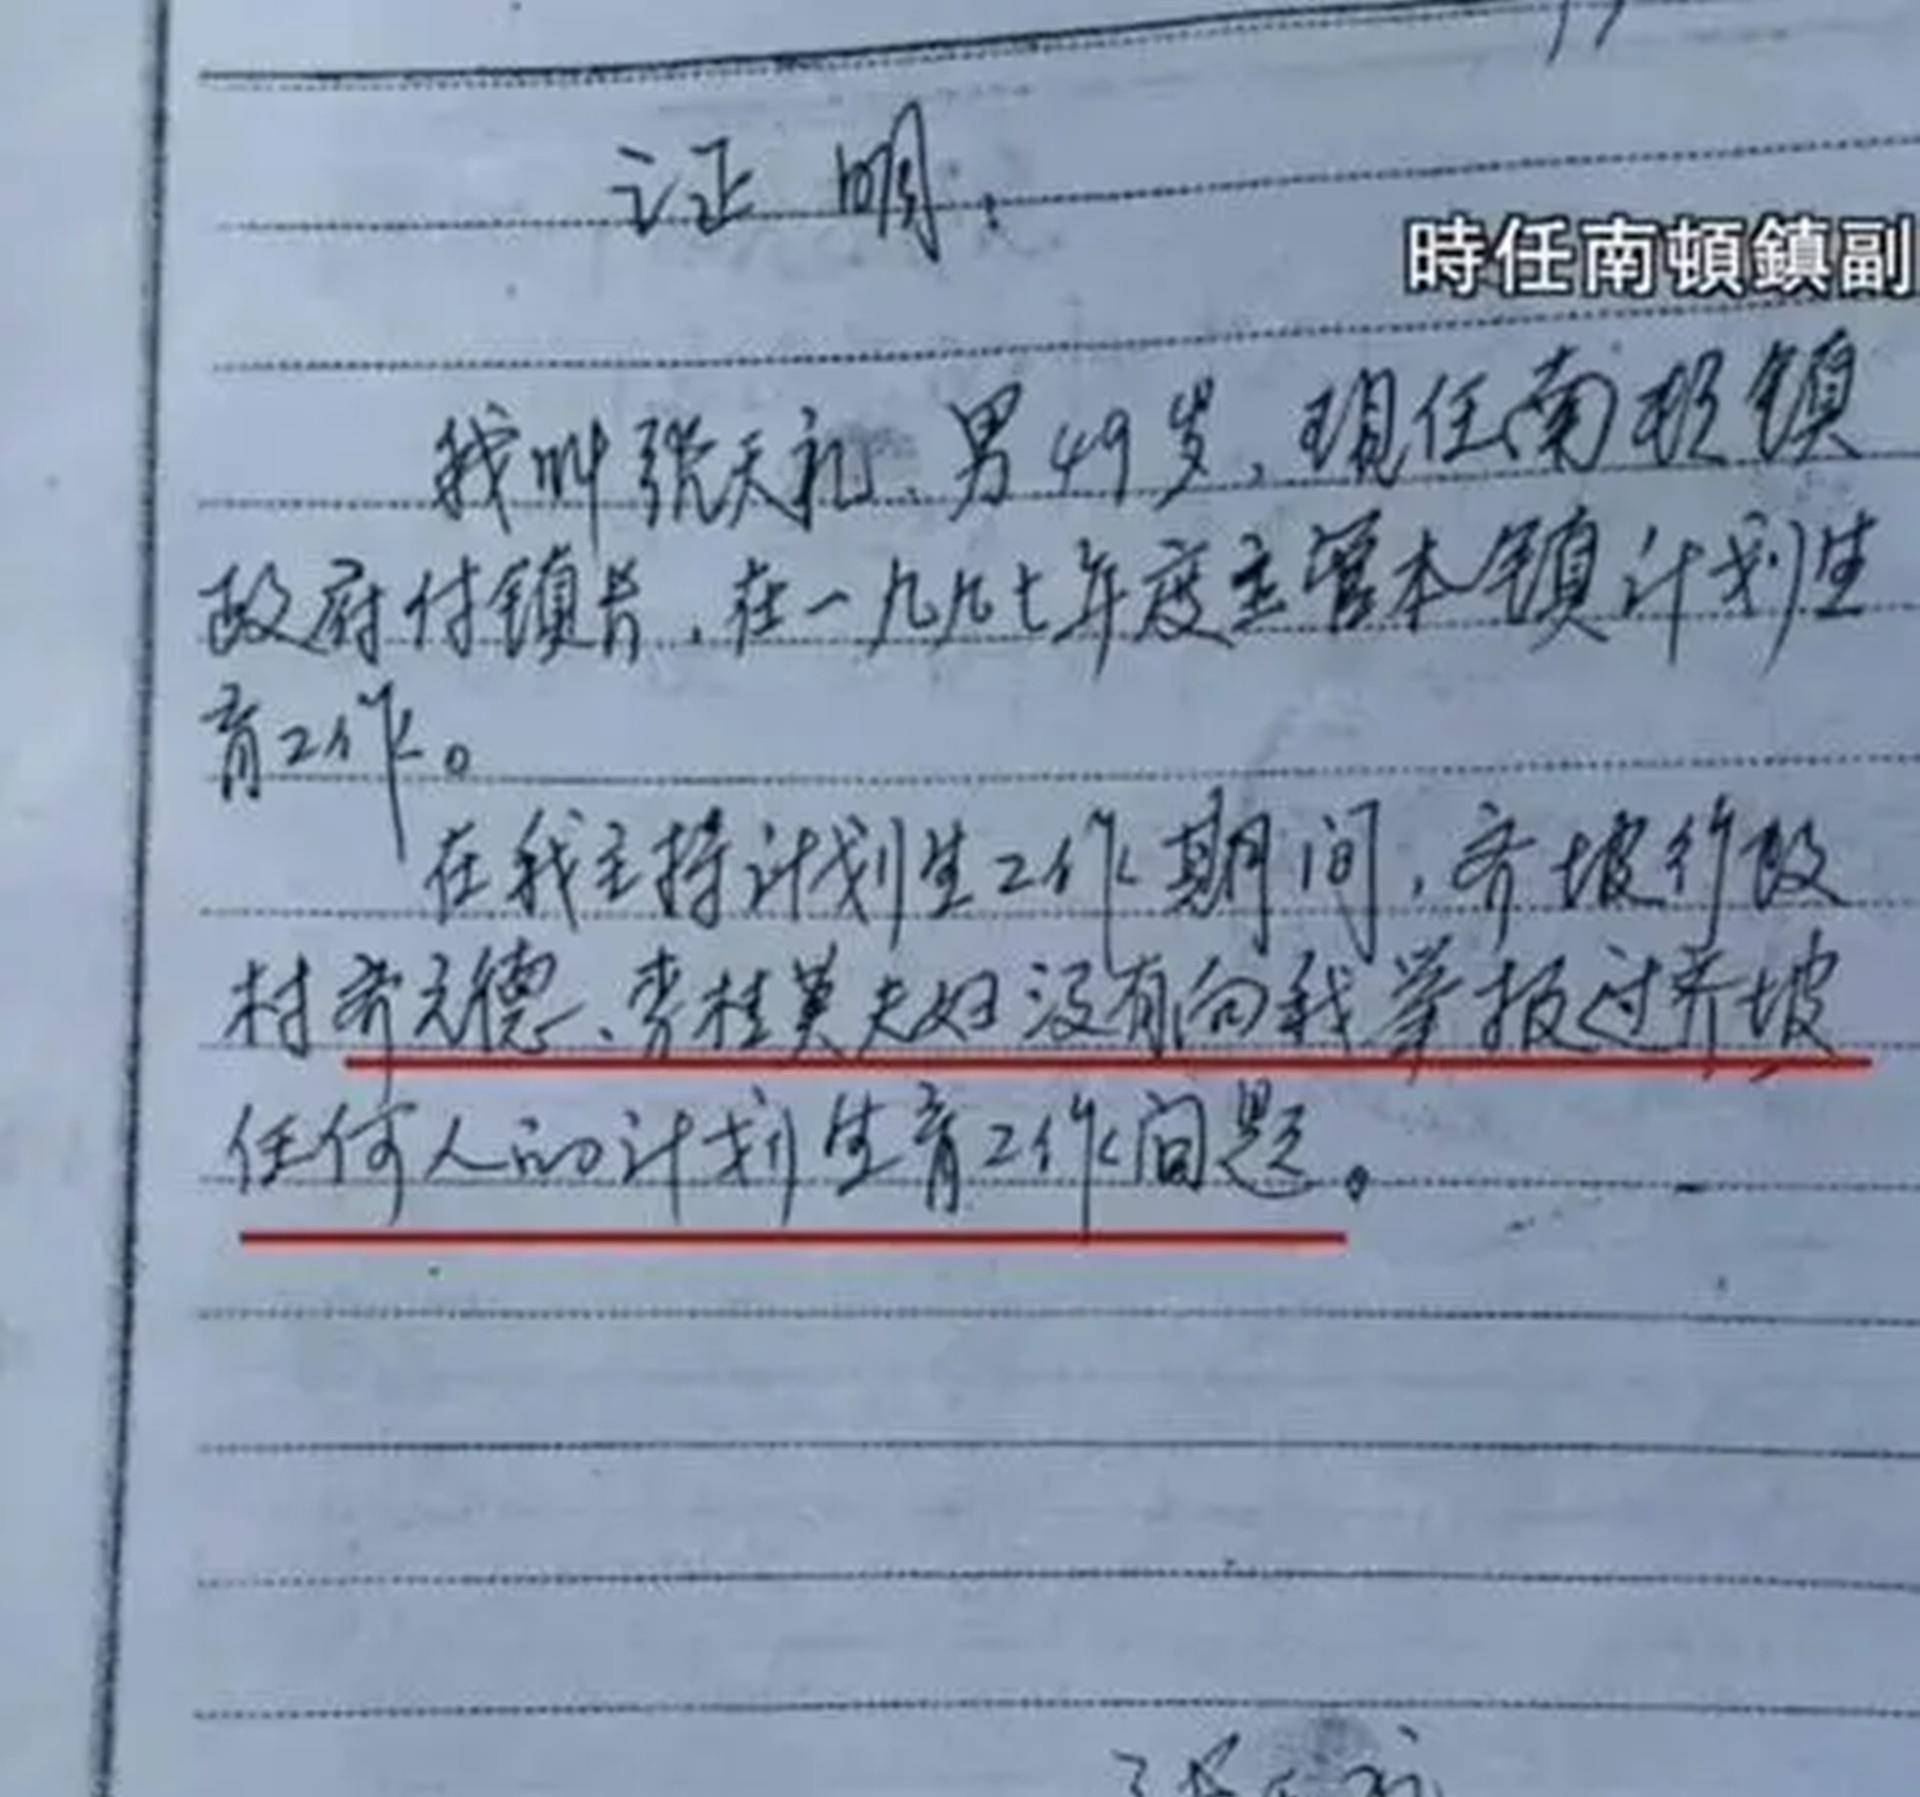 证明:
時任南頓鎮副
我叫张天礼、男49岁,现任南顿镇
政府付镇长,在一九九七年度主管本镇计划生
育工作。
在我主持计划生工作期间,齐坡行政
村齐元德、李桂英夫妇没有向我举报过齐坡
任何人的计划生育工作问题。
张天礼